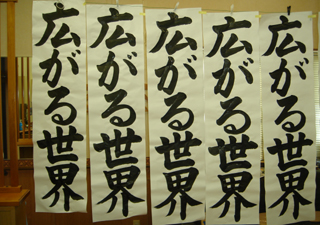 広がる世界
広がる世界
広がる世界
広がる世界
広がる世界